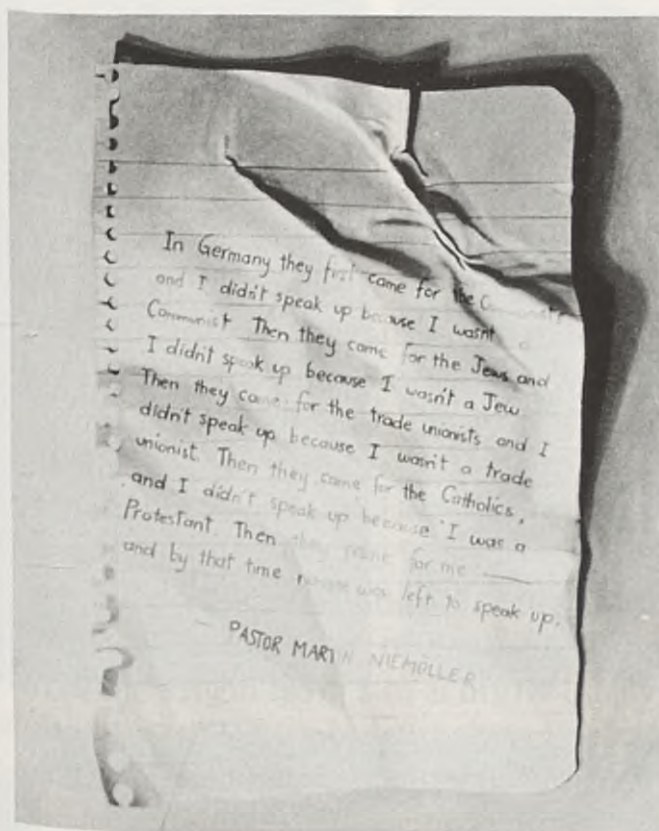 In Germany they first came for the Communists
and I didn't speak up because I wasn't a
Communist. Then they came for the Jews and
I didn't speak up because I wasn't a Jew
Then they came for the trade unionists and I
didn't speak up because I wasn't a trade
unionist. Then they came for the Catholics,
and I didn't speak up because I was a
Protestant. Then they came for me —
and by that time no one was left to speak up.
PASTOR MARTIN NIEMÖLLER